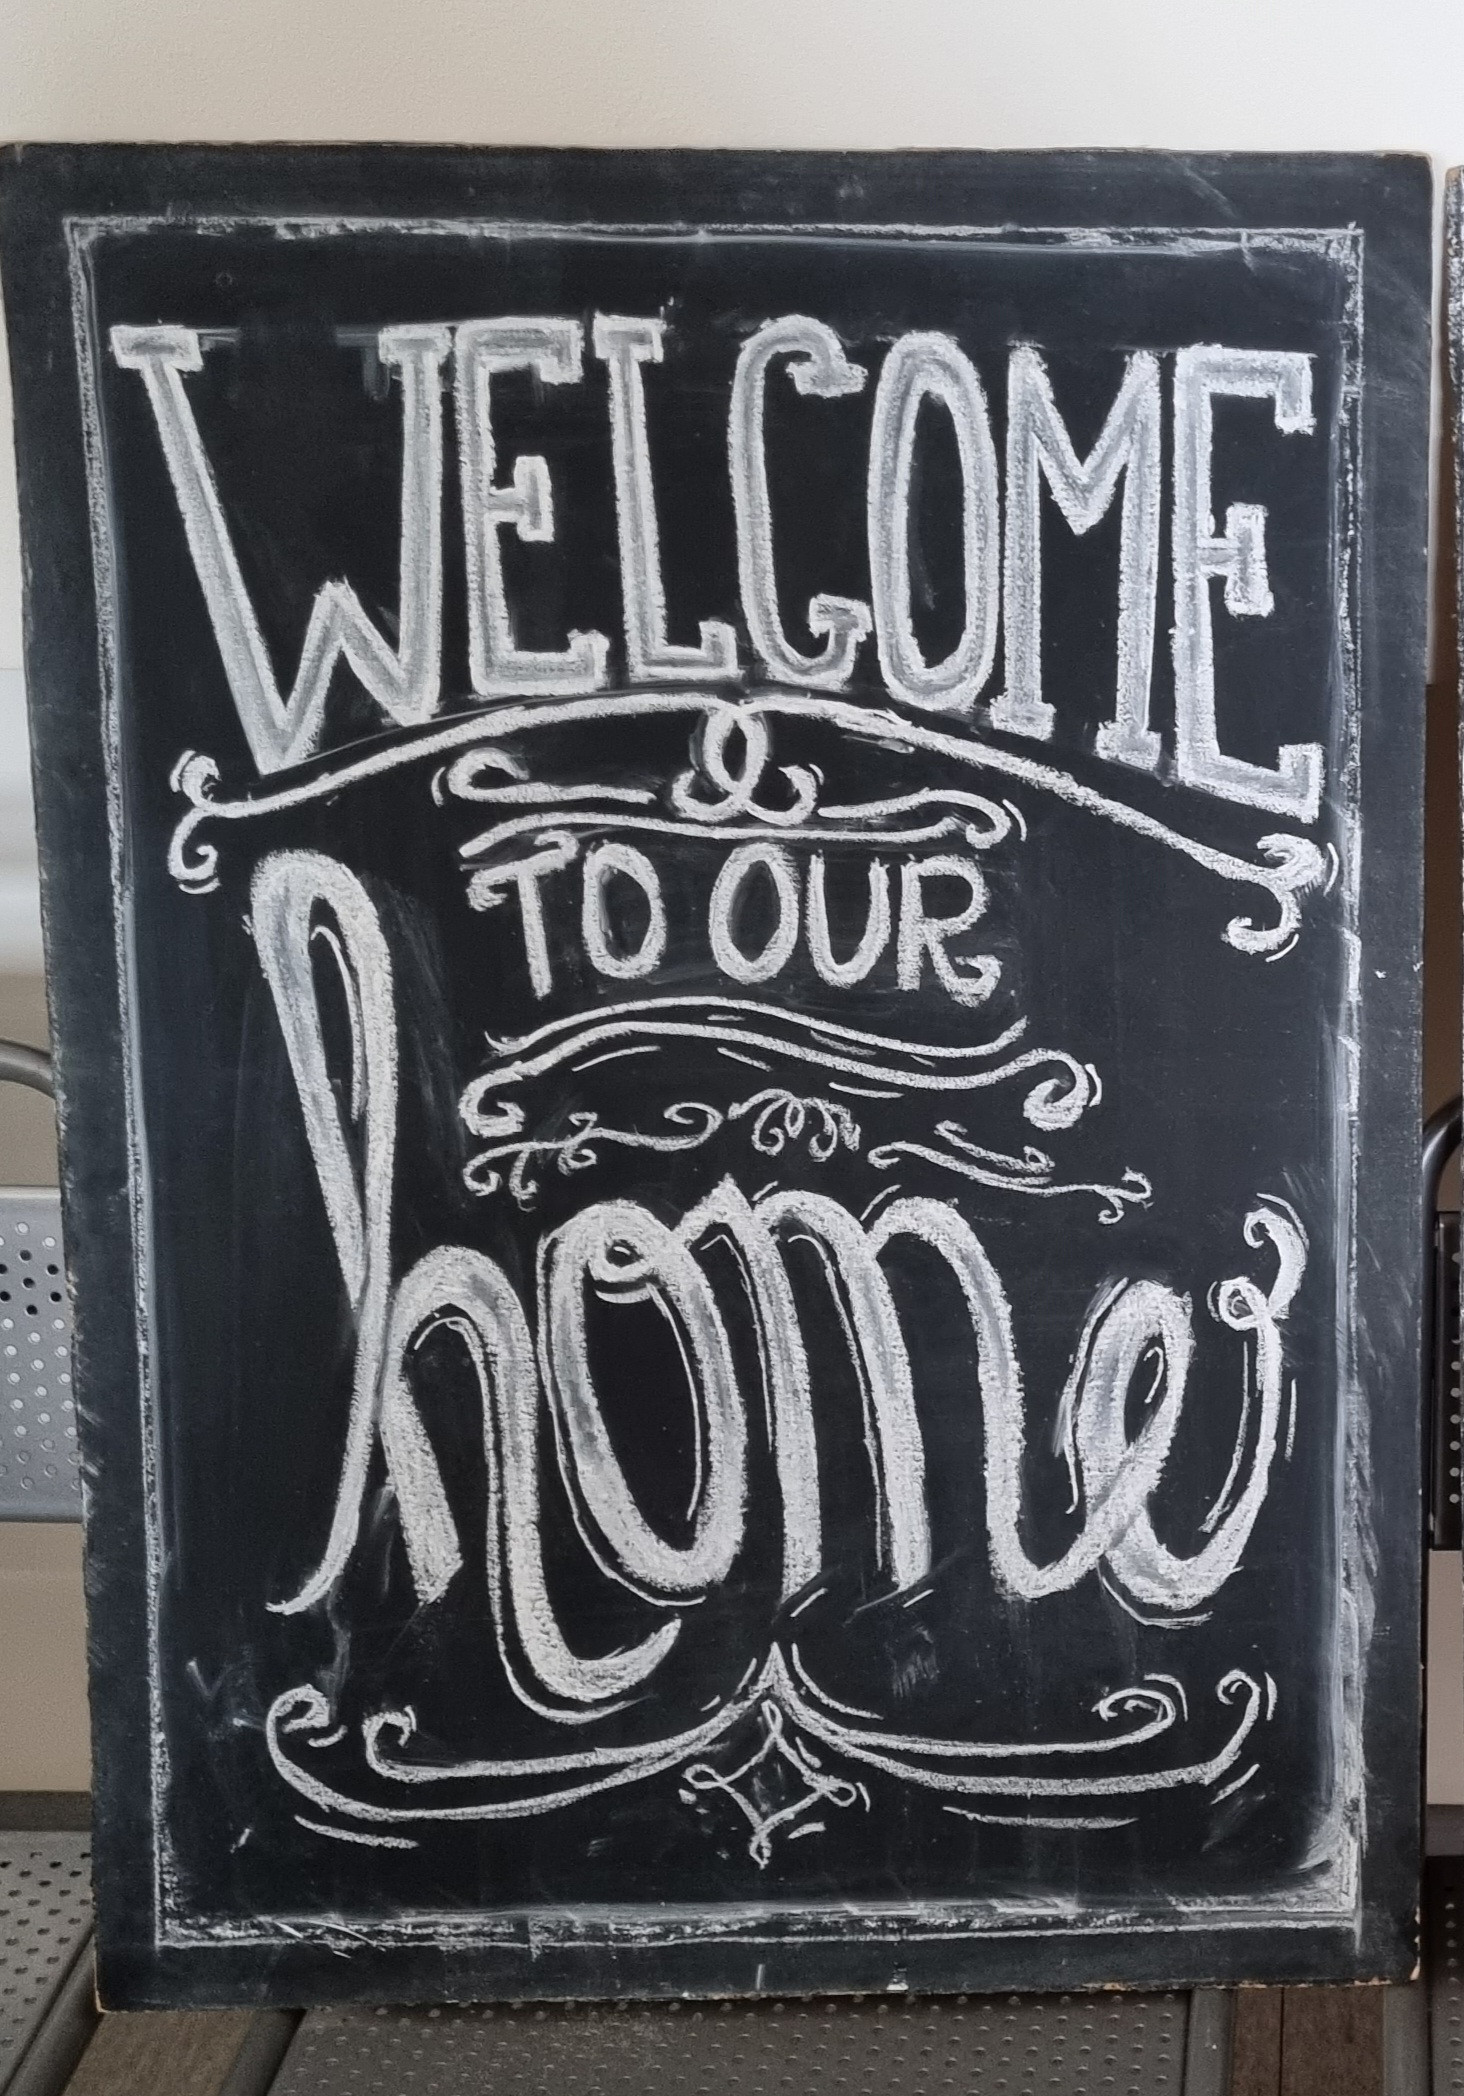 WELCOME
TO OUR
home